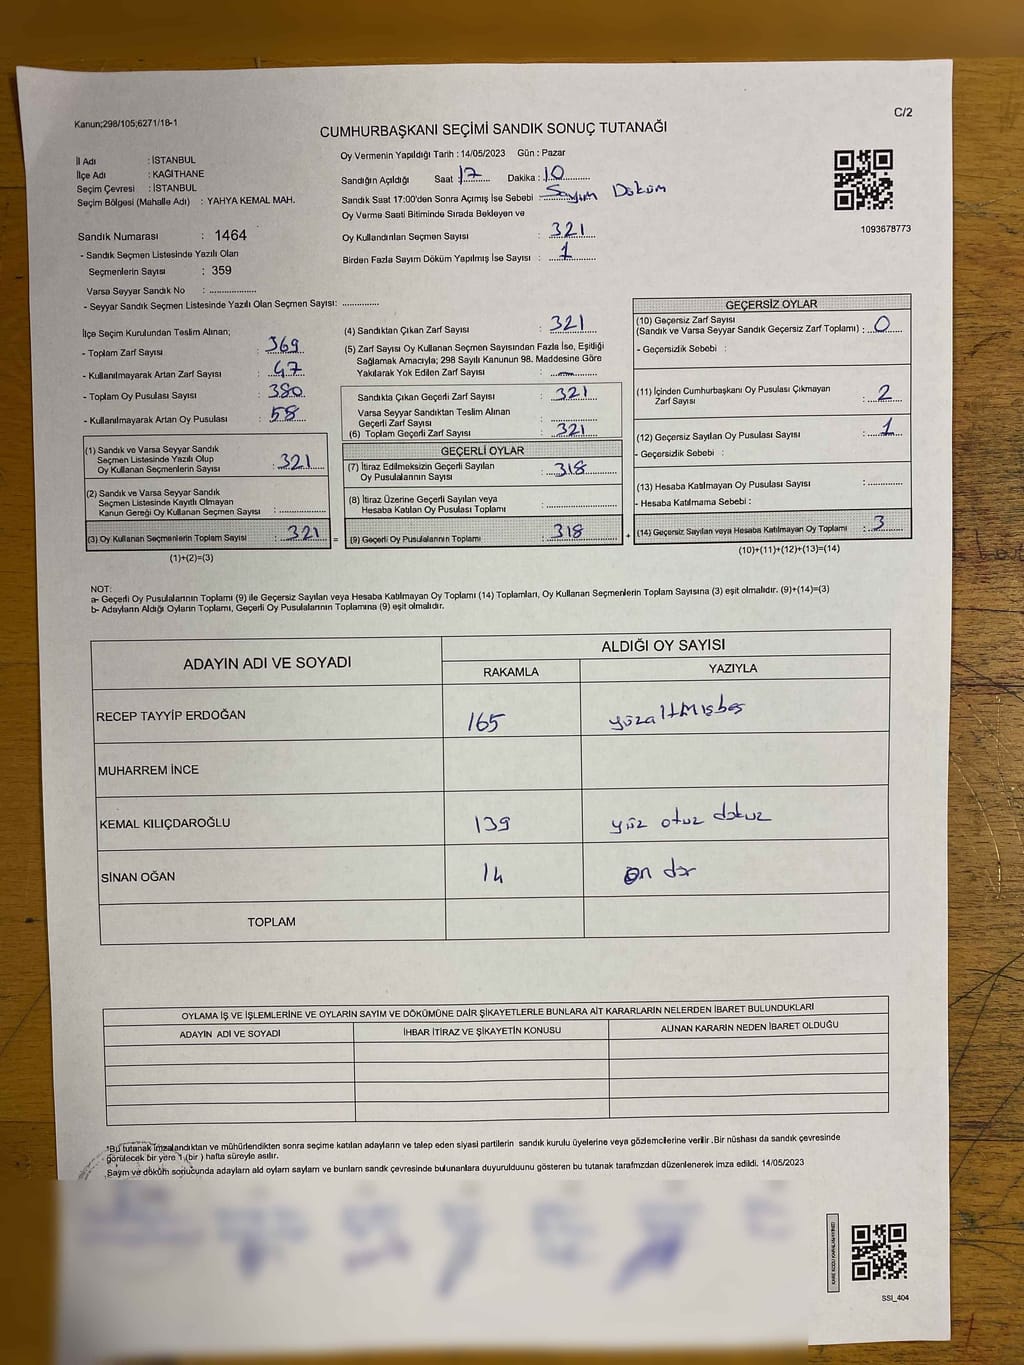 Kanun;298/105;6271/18-1
C/2
CUMHURBAŞKANI SEÇİMİ SANDIK SONUÇ TUTANAĞI
İl Adı : İSTANBUL
İlçe Adı : KAĞITHANE
Seçim Çevresi : İSTANBUL
Seçim Bölgesi (Mahalle Adı) : YAHYA KEMAL MAH.
Sandık Numarası : 1464
- Sandık Seçmen Listesinde Yazılı Olan
Seçmenlerin Sayısı : 359
Varsa Seyyar Sandık No : ..................
- Seyyar Sandık Seçmen Listesinde Yazılı Olan Seçmen Sayısı: ..............
Oy Vermenin Yapıldığı Tarih : 14/05/2023 Gün : Pazar
Sandığın Açıldığı Saat 17 Dakika : 10
Sandık Saat 17:00'den Sonra Açımış İse Sebebi : Sayım Döküm
Oy Verme Saati Bitiminde Sırada Bekleyen ve
Oy Kullandırılan Seçmen Sayısı : 321
Birden Fazla Sayım Döküm Yapılmış İse Sayısı : 1
1093678773
İlçe Seçim Kurulundan Teslim Alınan;
- Toplam Zarf Sayısı : 369
- Kullanılmayarak Artan Zarf Sayısı : 47
- Toplam Oy Pusulası Sayısı : 380
- Kullanılmayarak Artan Oy Pusulası : 58
(1) Sandık ve Varsa Seyyar Sandık
Seçmen Listesinde Yazılı Olup
Oy Kullanan Seçmenlerin Sayısı : 321
(2) Sandık ve Varsa Seyyar Sandık
Seçmen Listesinde Kayıtlı Olmayan
Kanun Gereği Oy Kullanan Seçmen Sayısı : ..............
(3) Oy Kullanan Seçmenlerin Toplam Sayısı : 321
(1)+(2)=(3)
(4) Sandıktan Çıkan Zarf Sayısı : 321
(5) Zarf Sayısı Oy Kullanan Seçmen Sayısından Fazla İse, Eşitliği
Sağlamak Amacıyla; 298 Sayılı Kanunun 98. Maddesine Göre
Yakılarak Yok Edilen Zarf Sayısı : —
Sandıkta Çıkan Geçerli Zarf Sayısı : 321
Varsa Seyyar Sandıktan Teslim Alınan
Geçerli Zarf Sayısı : ..............
(6) Toplam Geçerli Zarf Sayısı : 321
GEÇERLİ OYLAR
(7) İtiraz Edilmeksizin Geçerli Sayılan
Oy Pusulalarının Sayısı : 318
(8) İtiraz Üzerine Geçerli Sayılan veya
Hesaba Katılan Oy Pusulası Toplamı : ..............
= (9) Geçerli Oy Pusulalarının Toplamı : 318 +
GEÇERSİZ OYLAR
(10) Geçersiz Zarf Sayısı
(Sandık ve Varsa Seyyar Sandık Geçersiz Zarf Toplamı) : 0
- Geçersizlik Sebebi :
(11) İçinden Cumhurbaşkanı Oy Pusulası Çıkmayan
Zarf Sayısı : 2
(12) Geçersiz Sayılan Oy Pusulası Sayısı : 1
- Geçersizlik Sebebi :
(13) Hesaba Katılmayan Oy Pusulası Sayısı : ..............
- Hesaba Katılmama Sebebi :
(14) Geçersiz Sayılan veya Hesaba Katılmayan Oy Toplamı : 3
(10)+(11)+(12)+(13)=(14)
NOT:
a- Geçerli Oy Pusulalarının Toplamı (9) ile Geçersiz Sayılan veya Hesaba Katılmayan Oy Toplamı (14) Toplamları, Oy Kullanan Seçmenlerin Toplam Sayısına (3) eşit olmalıdır. (9)+(14)=(3)
b- Adayların Aldığı Oyların Toplamı, Geçerli Oy Pusulalarının Toplamına (9) eşit olmalıdır.
ADAYIN ADI VE SOYADI
ALDIĞI OY SAYISI
RAKAMLA YAZIYLA
RECEP TAYYİP ERDOĞAN 165 yüzaltmışbeş
MUHARREM İNCE
KEMAL KILIÇDAROĞLU 139 yüz otuz dokuz
SİNAN OĞAN 14 on dör
TOPLAM
OYLAMA İŞ VE İŞLEMLERİNE VE OYLARIN SAYIM VE DÖKÜMÜNE DAİR ŞİKAYETLERLE BUNLARA AİT KARARLARIN NELERDEN İBARET BULUNDUKLARI
ADAYIN ADI VE SOYADI İHBAR İTİRAZ VE ŞİKAYETİN KONUSU ALINAN KARARIN NEDEN İBARET OLDUĞU
*Bu tutanak imzalandıktan ve mühürlendikten sonra seçime katılan adayların ve talep eden siyasi partilerin sandık kurulu üyelerine veya gözlemcilerine verilir .Bir nüshası da sandık çevresinde
görülecek bir yere 1 (bir ) hafta süreyle asılır.
Sayım ve döküm sonucunda adayların ald oyların sayların ve bunların sandık çevresinde bulunanlara duyurulduunu gösteren bu tutanak tarafımzdan düzenlenerek imza edildi. 14/05/2023
SSI_404